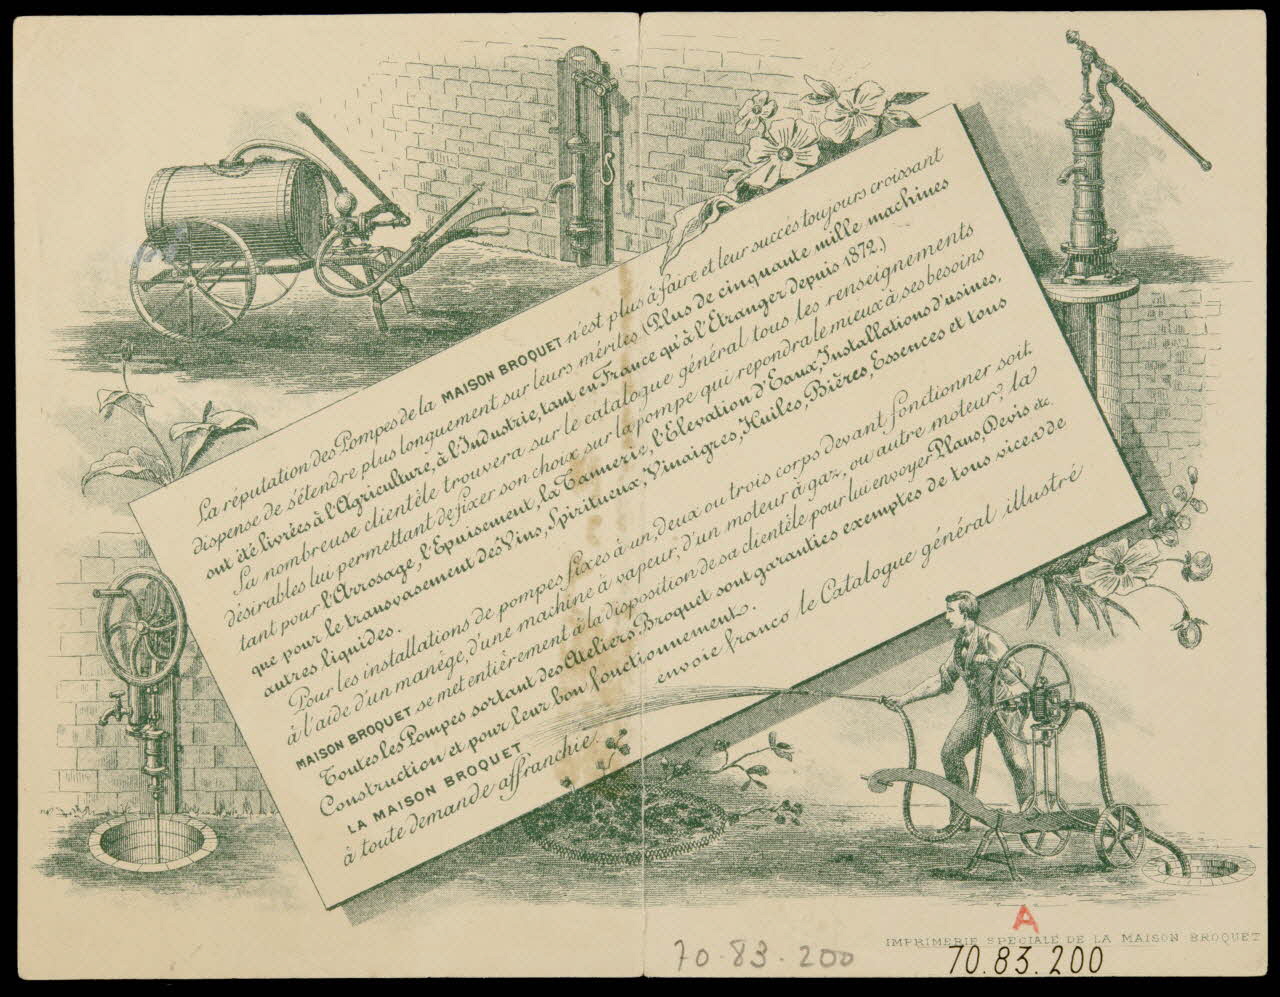 La réputation des Pompes de la MAISON BROQUET n'est plus à faire et leur succès toujours croissant
dispense de s'étendre plus longuement sur leurs mérites (Plus de cinquante mille machines
ont été livrées à l'Agriculture, à l'Industrie, tant en France qu'à l'Étranger depuis 1872.)
Sa nombreuse clientèle trouvera sur le catalogue général tous les renseignements
désirables lui permettant de fixer son choix sur la pompe qui repondra le mieux à ses besoins
tant pour l'Arrosage, l'Epuisement, la Tannerie, l'Élevation d'Eaux, Installations d'usines,
que pour le transvasement des Vins, Spiritueux, Vinaigres, Huiles, Bières, Essences et tous
autres liquides.
Pour les installations de pompes fixes à un, deux ou trois corps devant fonctionner soit
à l'aide d'un manège, d'une machine à vapeur, d'un moteur à gaz, ou autre moteur, la
MAISON BROQUET se met entièrement à la disposition de sa clientèle pour lui envoyer Plans, Devis &c
Toutes les Pompes sortant des Ateliers Broquet sont garanties exemptes de tous vices de
Construction et pour leur bon fonctionnement.
LA MAISON BROQUET envoie franco le Catalogue général illustré
à toute demande affranchie
A
IMPRIMERIE SPÉCIALE DE LA MAISON BROQUET
70.83.200
70.83.200